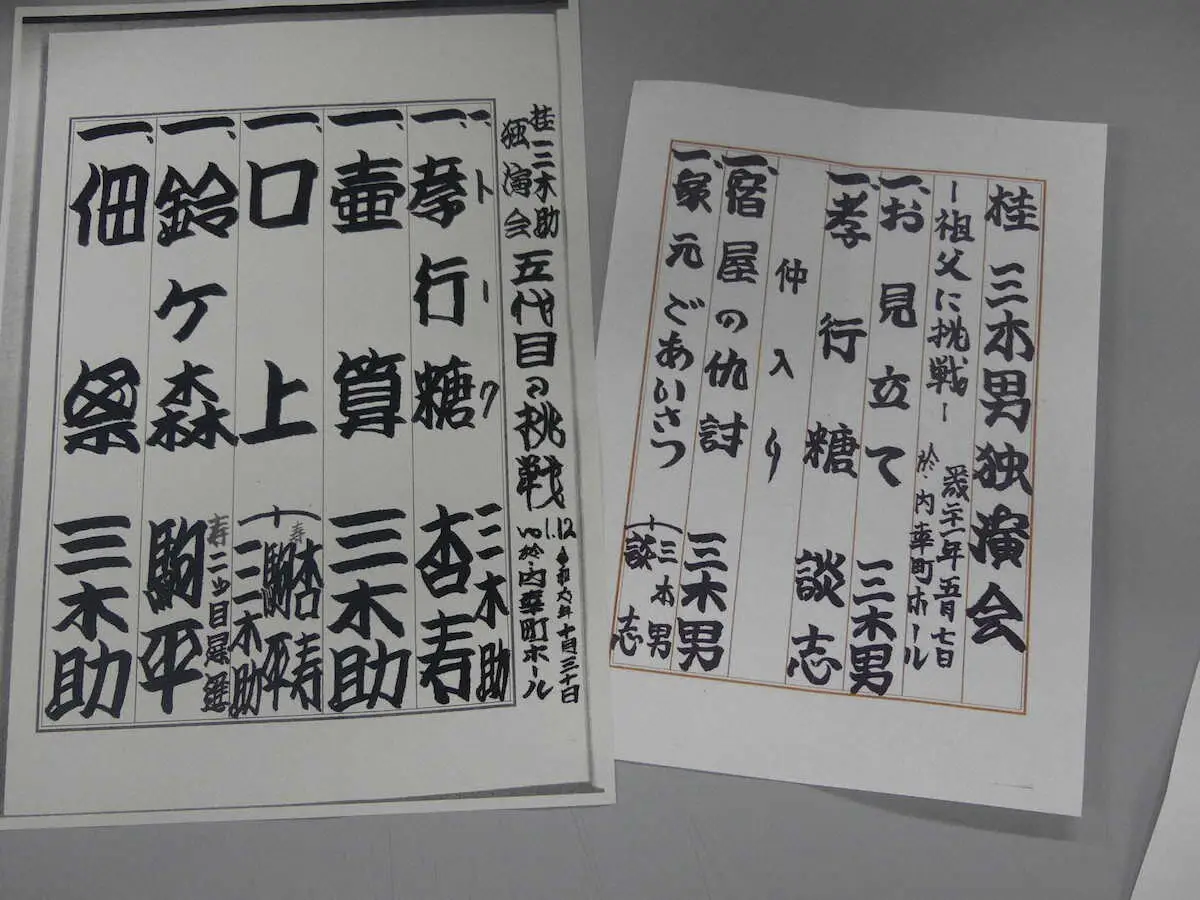 桂三木助
独演会
五代目の挑戦
vol.12 令和六年十月三十日
於・内幸町ホール
一、トーク 三木助
一、孝行糖 杏寿
一、壷算 三木助
一、口上
寿 杏寿
駒平
三木助
一、鈴ケ森 駒平
寿二ツ目昇進
一、佃祭 三木助
桂三木男独演会
ー祖父に挑戦ー
二十一年五月七日
於・内幸町ホール
一、お見立て 三木男
一、孝行糖 談志
仲入り
一、宿屋の仇討 三木男
一、家元ごあいさつ
三木男
談志